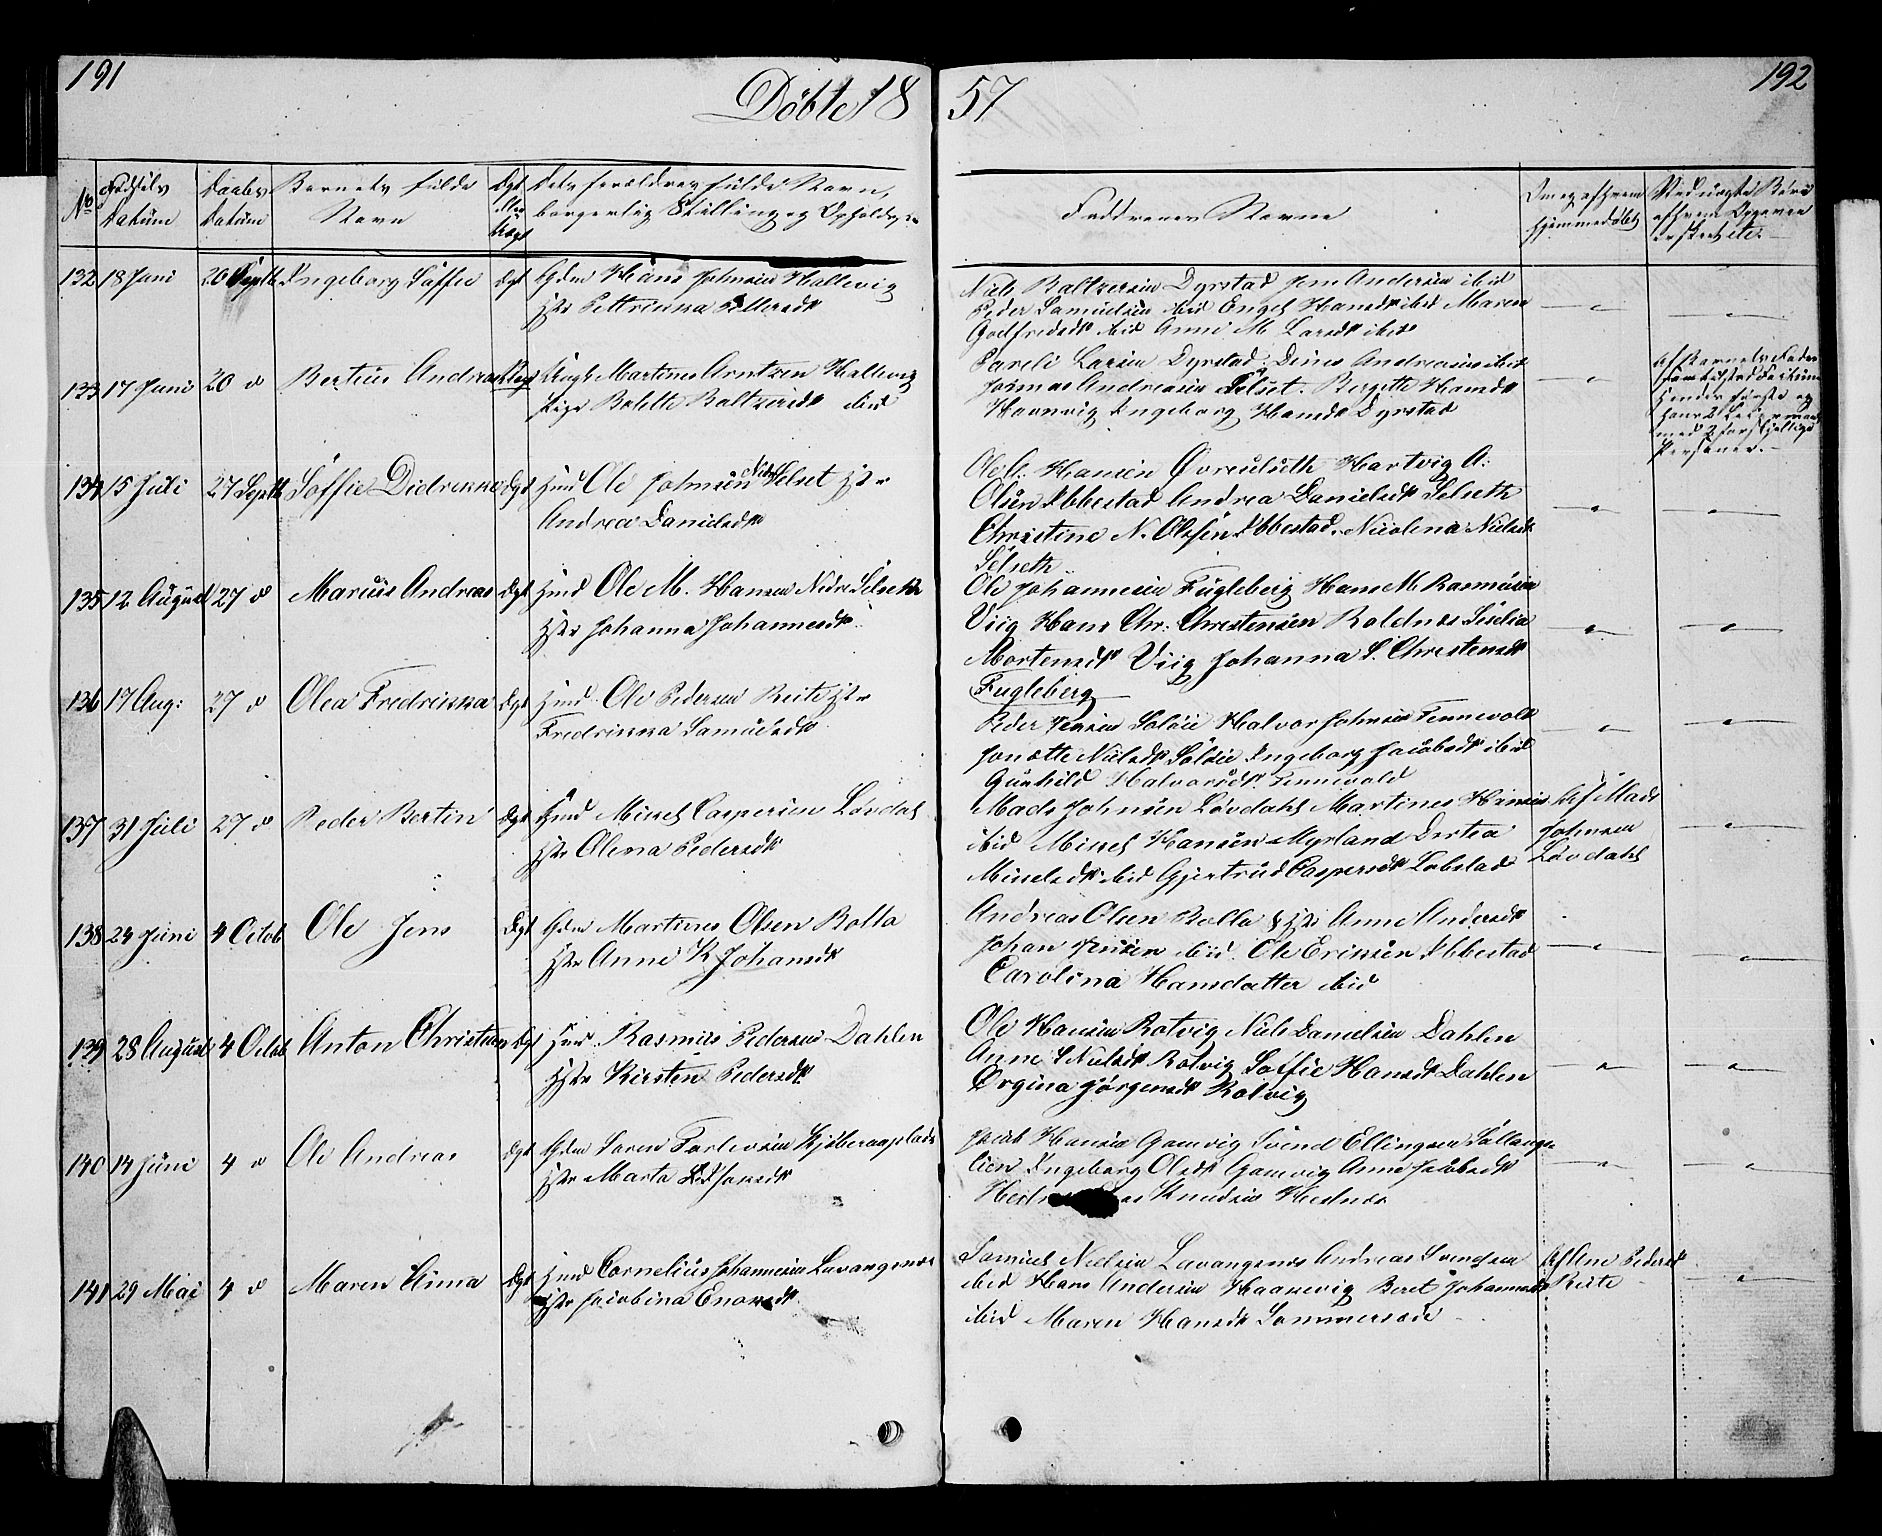 191
Döbte 18
57
192
No
Fødsels Datum
Daabs Datum
Barnets fulde Navn
Ægt eller Uægt
Dets Forældres fulde Navn,
borgerlig Stilling og Opholds
Faddernes Navne
Om og af hvem hjemmedøbt
132 18 Juni 20 Septb Ingeborg Söffie Ægt Gdm Hans Johnsen Hallevig
Hst Pettrikka Pettersdt
Niels Baltzersen Dyrstad Jens Andersen ibid
Peder Samuelsen ibid Engel Hansdt ibid Maren
Godfredsdt ibid Anne M Larsdt ibid
133 17 Juni 20 d Bertius Andreas Uægt Ungk Martines Arntzen Hallevig
Pige Bolette Baltzersdt ibid
Pareli Larsen Dyrstad. Dines Andreasen ibid
Johnas Andreasen Selset. Bergitte Hansdt
Havnvig Ingeborg Hansdt Dyrstad
Af Barnets Fader
med 2 forskjellige
Personer.
134 15 Juli 27 Septb Söffie Didrikke Ægt Hmd Ole Johnsen Nedr Selset Hst
Andrea Danielsdt
Ole A: Hansen Øvreuluth Hartvig A:
Olsen Ibbestad Andrea Danielsdt Selseth
Christine N. Olsen Ibbestad. Nicolena Nielsdt
Selseth
135 12 August 27 d Marius Andreas Ægt Hmd Ole M. Hansen Nedre Selseth
Hst Johanna Johannesdt
Ole Johannesen Fugleberg Hans M Rasmusen
Viig Hans Chr: Christensen Roldnes Siselia
Mortensdt Viig Johanna S. Christensdt
Fugleberg
136 17 Aug: 27 d Olea Fredrikka Ægt Hmd Ole Pedersen Reite Hst
Fredrikka Samuelsdt
Peder Jensen Soløie Halvor Johnsen Tennevold
Jonette Nielsdt Soløie Ingeborg Jacobsdt ibid
Gunhild Halvorsdt Tennevold
137 31 Juli 27 d Peder Bertin Ægt Hmd Mikel Caspersen Løvdahl
Hst Olena Pedersdt
Mads Johnsen Løvdahl Martines Hansen
ibid Mikel Hansen Myrland Dortea
Mikelsdt ibid Gjertrud Caspersdt Lobstad
Af Mads
Johnsen
Løvdahl
138 24 Juni 4 Octob Ole Jens Ægt Gdm Martines Olsen Rolla
Hst Anne K Johansdt
Andreas Olsen Rolla & Hst Anne Andersdt
Johan Jensen ibid. Ole Eriksen Ibbestad
Carolina Hansdatter ibid
139 28 August 4 Octob Anton Christian Ægt Hmd Rasmus Pedersen Dahlen
Hst Kirsten Pedersdt
Ole Hansen Rotvig Niels Danielsen Dahlen
Anne S Nielsdt Rotvig Soffie Hansdt Dahlen
Ørgina Jörgensdt Rotvig
140 14 Juni 4 d Ole Andreas Ægt Gdm Soren Torlevsen Kjøbernaplads
Hst Marta
Jacob Hansen Gamvig Svend Ellingsen Sallangs
lien Ingeborg Olsdt Gamvig Anne Jacobsdt
Knudsen Hesdnes
141 29 Mai 4 d Maren Anna Ægt Hmd Cornelius Johannesen Lavangsnes
Hst Jacobina Enoksdt
Samuel Nielsen Lavangsnes Andreas Svendsen
ibid Hans Andersen Haakevig Beret Johannesdt
ibid Maren Hansdt Sommersæde
Af Ane Pedersdt
Reite